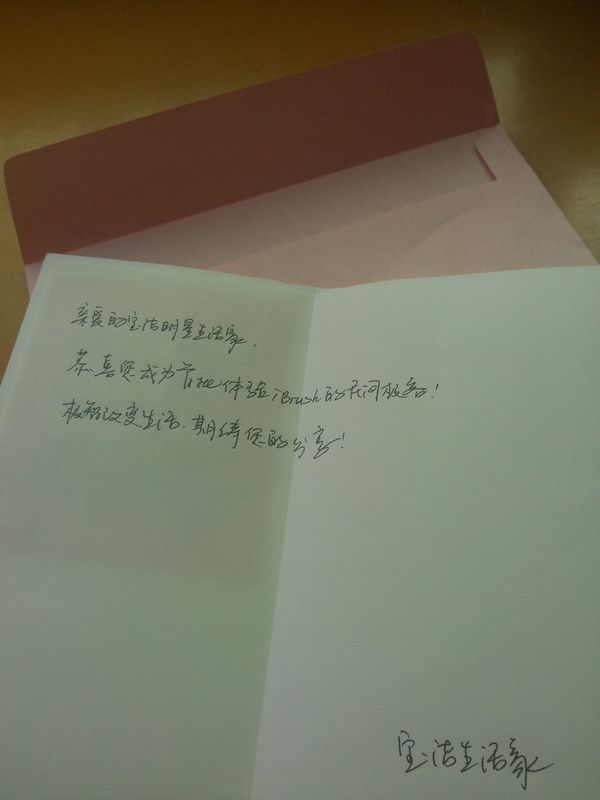 亲爱的宝洁明星生活家,
恭喜您成为首批体验iBrush的民间极客!
极智改变生活.期待您的分享!
宝洁生活家